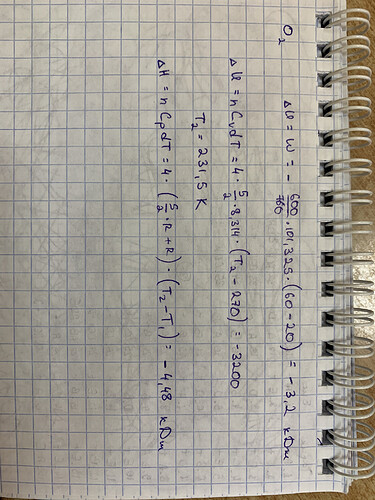 O₂ ΔU = W = - 600/760 · 101,325 · (60 - 20) = - 3,2 кДж
ΔU = n Cᵥ dT = 4 · 5/2 · 8,314 · (T₂ - 270) = - 3200
T₂ = 231,5 K
ΔH = n Cₚ dT = 4 · (5/2 · R + R) · (T₂ - T₁) = - 4,48 кДж